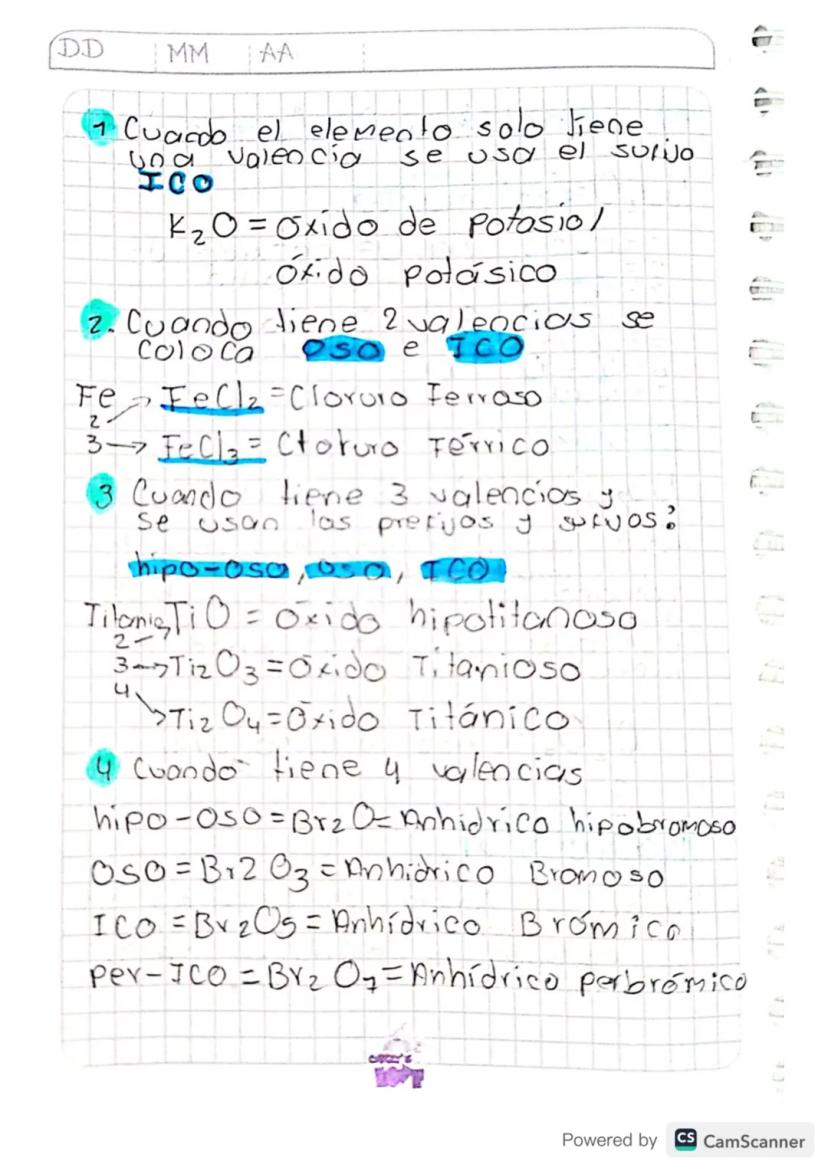 D.D MM AA
1 Cuando el elemento solo tiene
una valencia se usa el sufijo
ICO
K2O = óxido de Potasio/
óxido potásico
2. Cuando tiene 2 valencias se
coloca OSO e ICO
Fe → FeCl2 = Cloruro Ferroso
2
3 → FeCl3 = Cloruro Férrico
3 Cuando tiene 3 valencias y
se usan los prefijos y sufijos:
hipo-oso, oso, ICO
Titanio TiO = óxido hipotitanoso
2
3 → Ti2O3 = óxido Titanioso
4
Ti2O4 = óxido Titánico
4 Cuando tiene 4 valencias
hipo-OSO = Br2O = Anhídrico hipobromoso
OSO = Br2O3 = Anhídrico Bromoso
ICO = Br2O5 = Anhídrico Brómico
per-ICO = Br2O7 = Anhídrico perbrómico
Powered by CS CamScanner